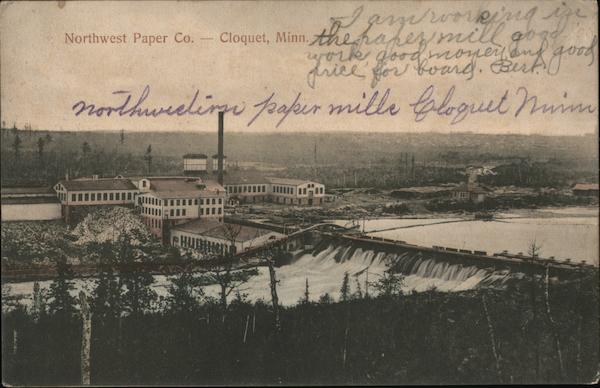 Northwest Paper Co. — Cloquet, Minn.
I am working in
the paper mill good
work good money and good
price for board. Bert.
northwestern paper mills Cloquet Minn